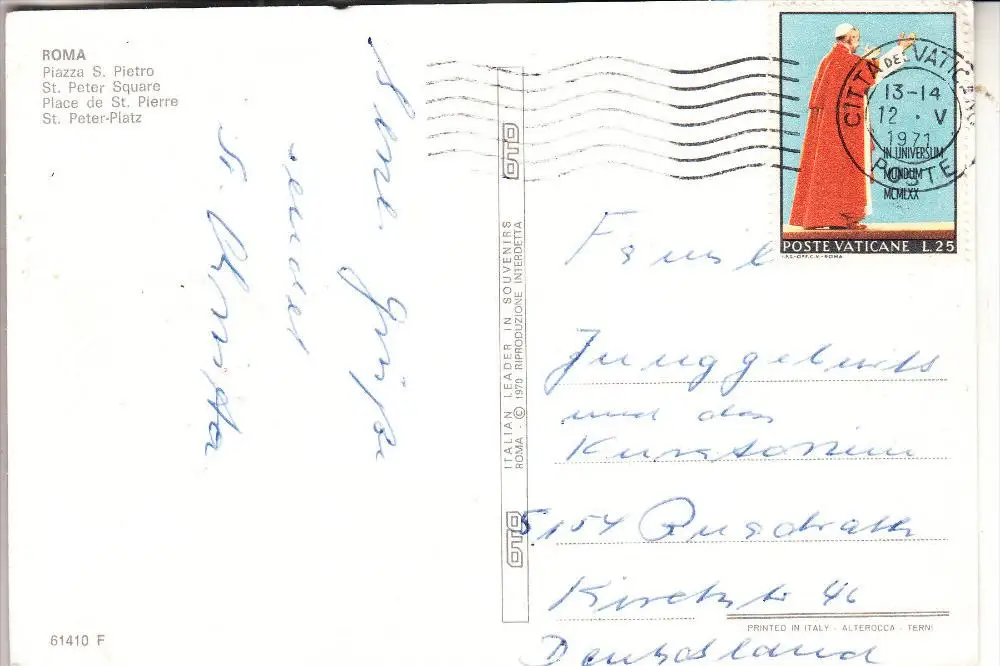 ROMA
Piazza S. Pietro
St. Peter Square
Place de St. Pierre
St. Peter-Platz
Liebe Grüße
sendet
ITALIAN LEADER IN SOUVENIRS
ROMA - © 1970 RIPRODUZIONE INTERDETTA
CITTÀ DEL VATICANO
13-14
12 · V
1971
POSTE
IN UNIVERSUM
MUNDUM
MCMLXX
POSTE VATICANE L.25
I.P.S.-OFF.C.V.-ROMA
Famil
und das
Kuratorium
5154
Kirchstr 46
Deutschland
PRINTED IN ITALY - ALTEROCCA - TERNI
61410 F